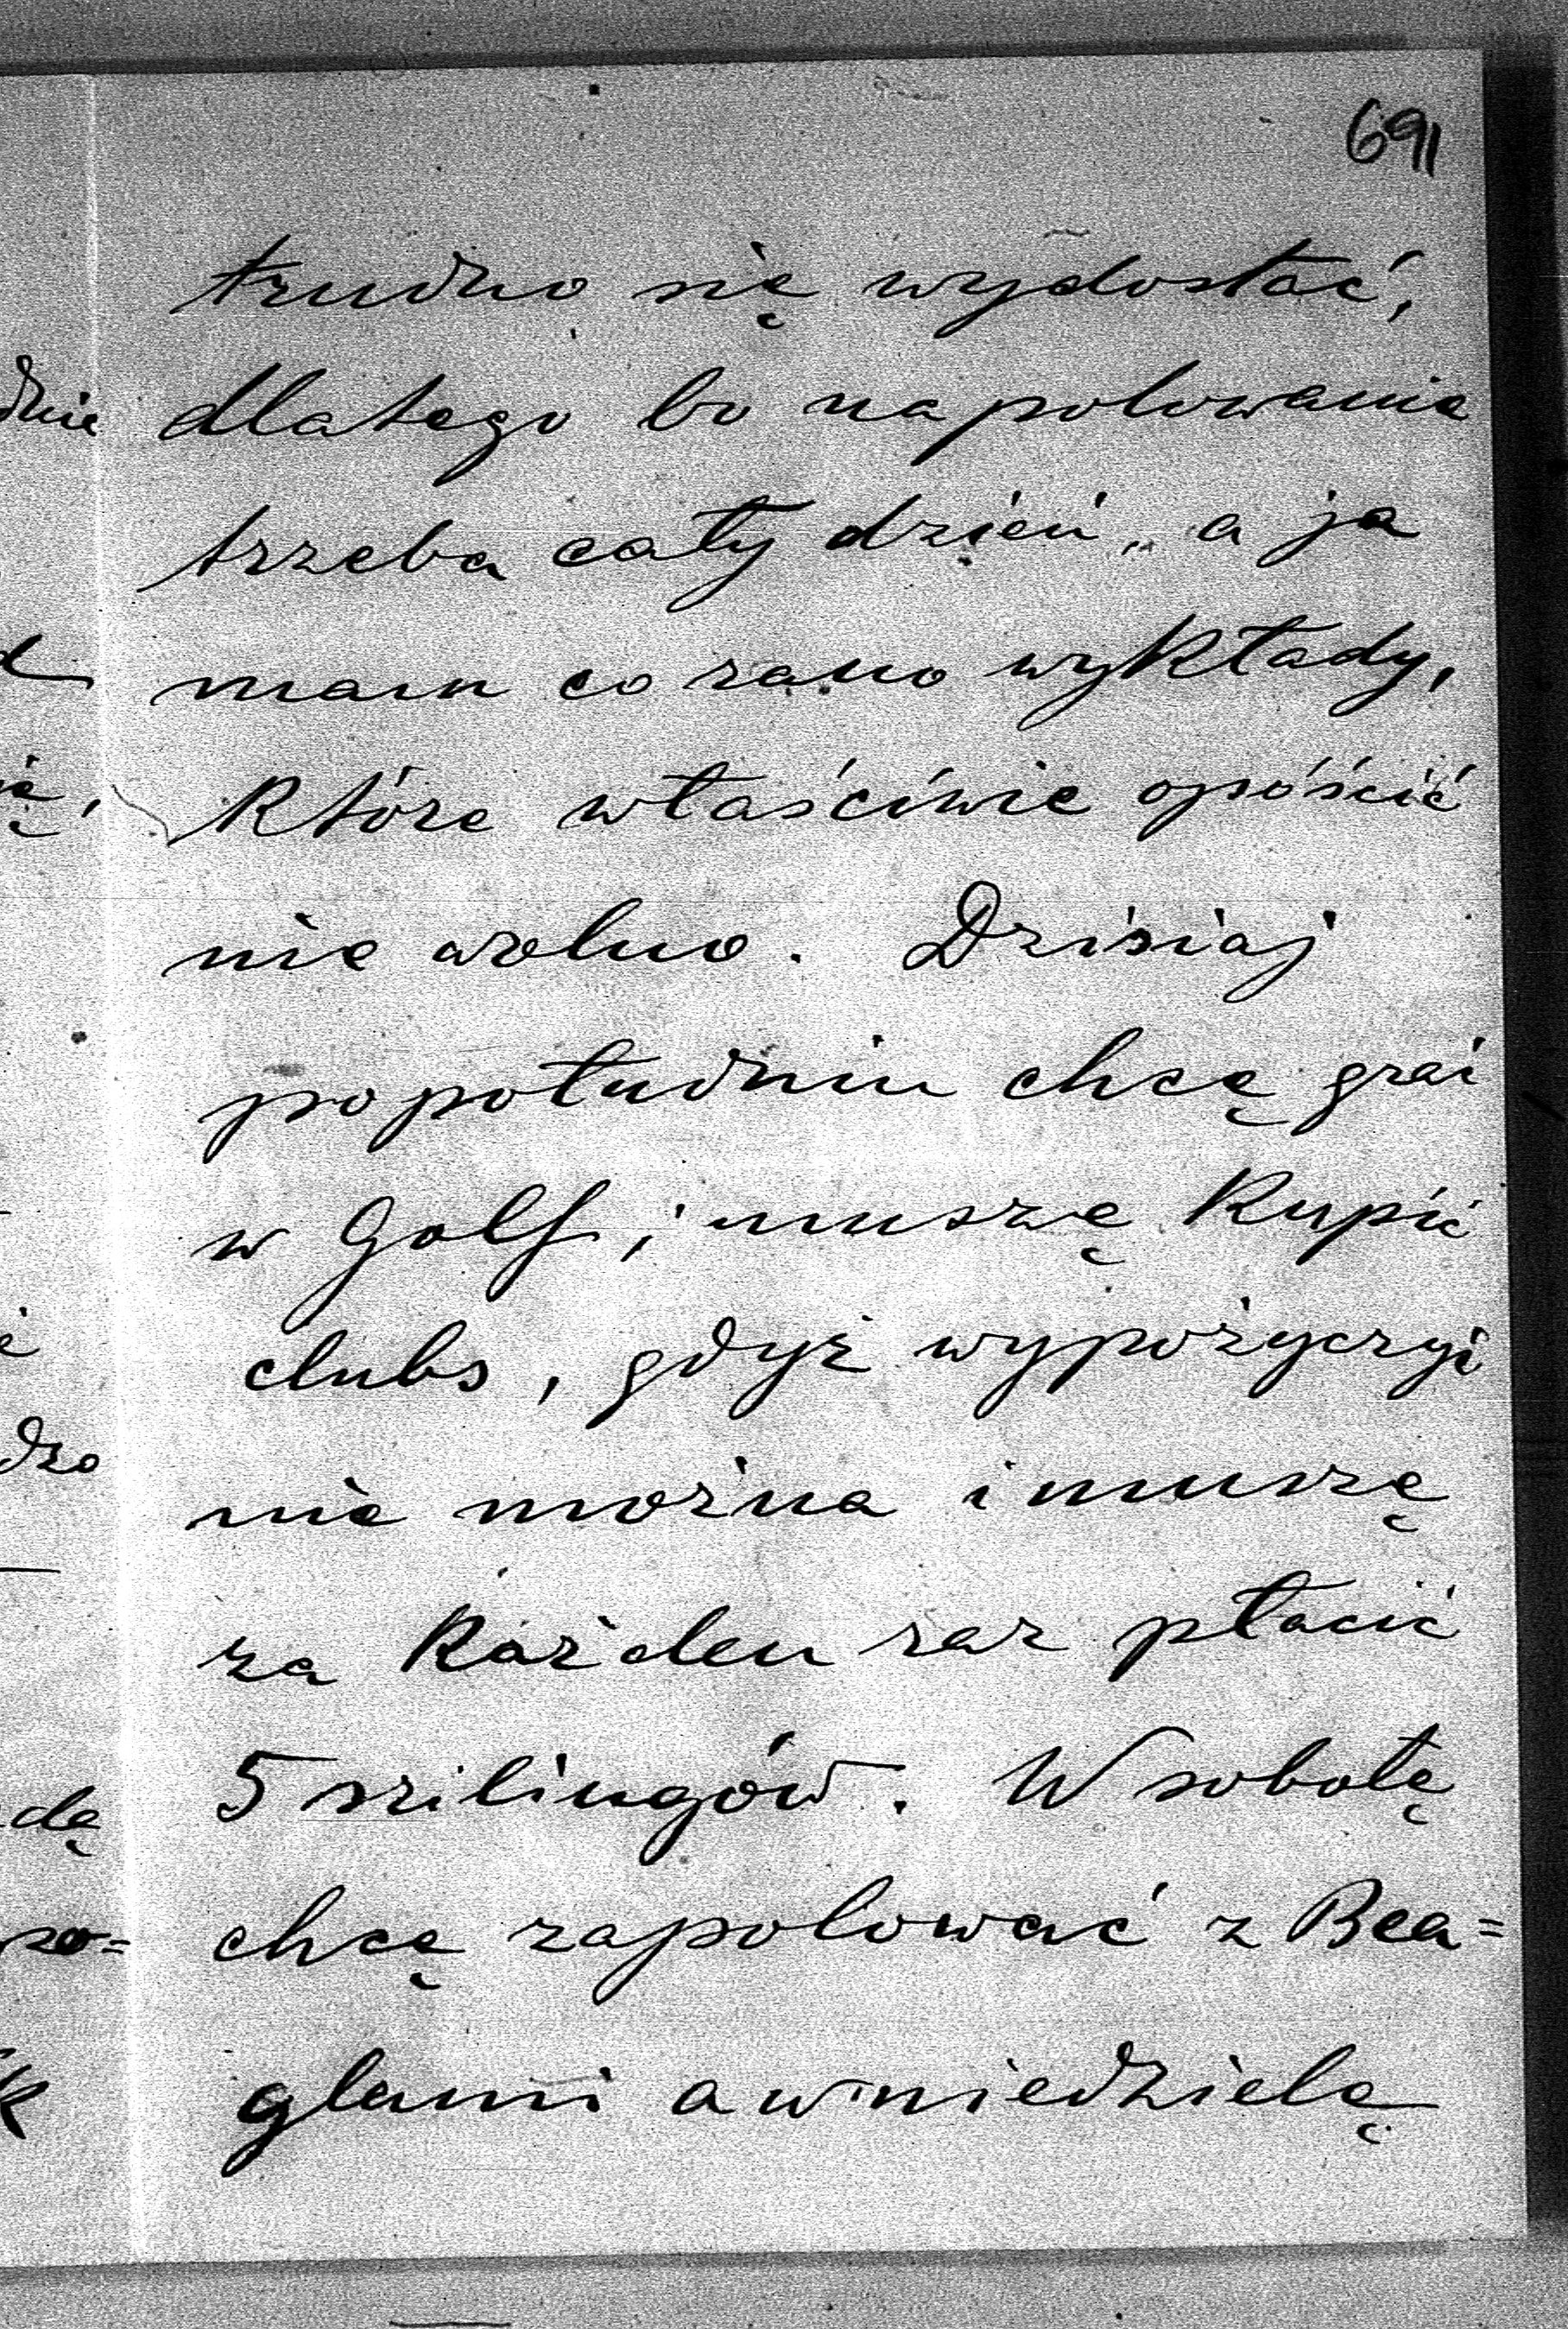 691
trudno się wydostać,
dlatego bo na polowanie
trzeba cały dzień, a ja
mam co rano wykłady,
które właścíwie opóścić
nie wolno. Dzisiaj
po południu chcę grać
w Golf; muszę kupić
clubs, gdyż wypożyczyć
nie można i muszę
za każden raz płacić
5 szilingów. W sobotę
chcę zapolować z Bea=
glami a w niedzielę